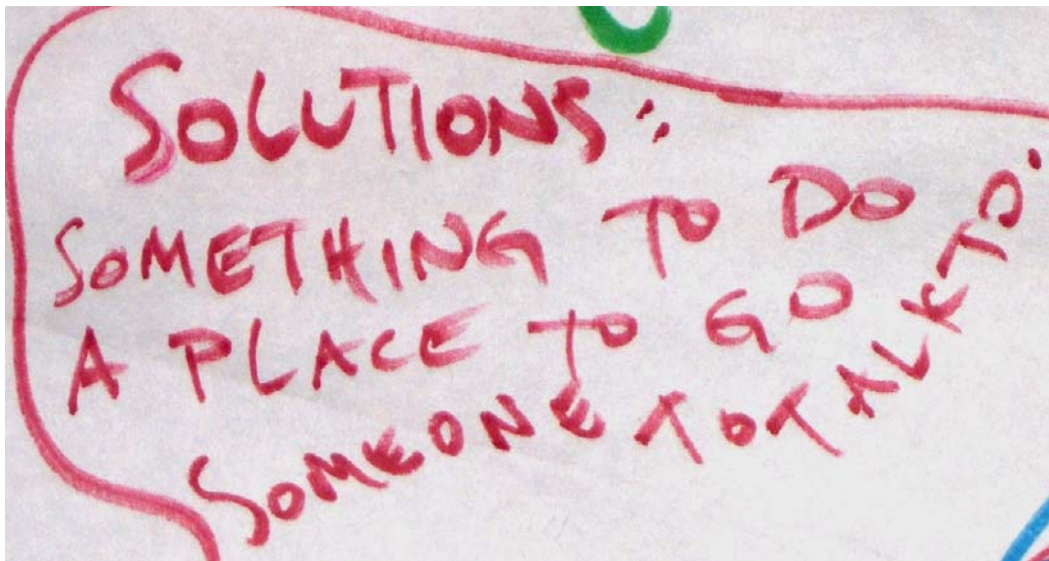 SOLUTIONS:
SOMETHING TO DO
A PLACE TO GO
SOMEONE TO TALK TO.